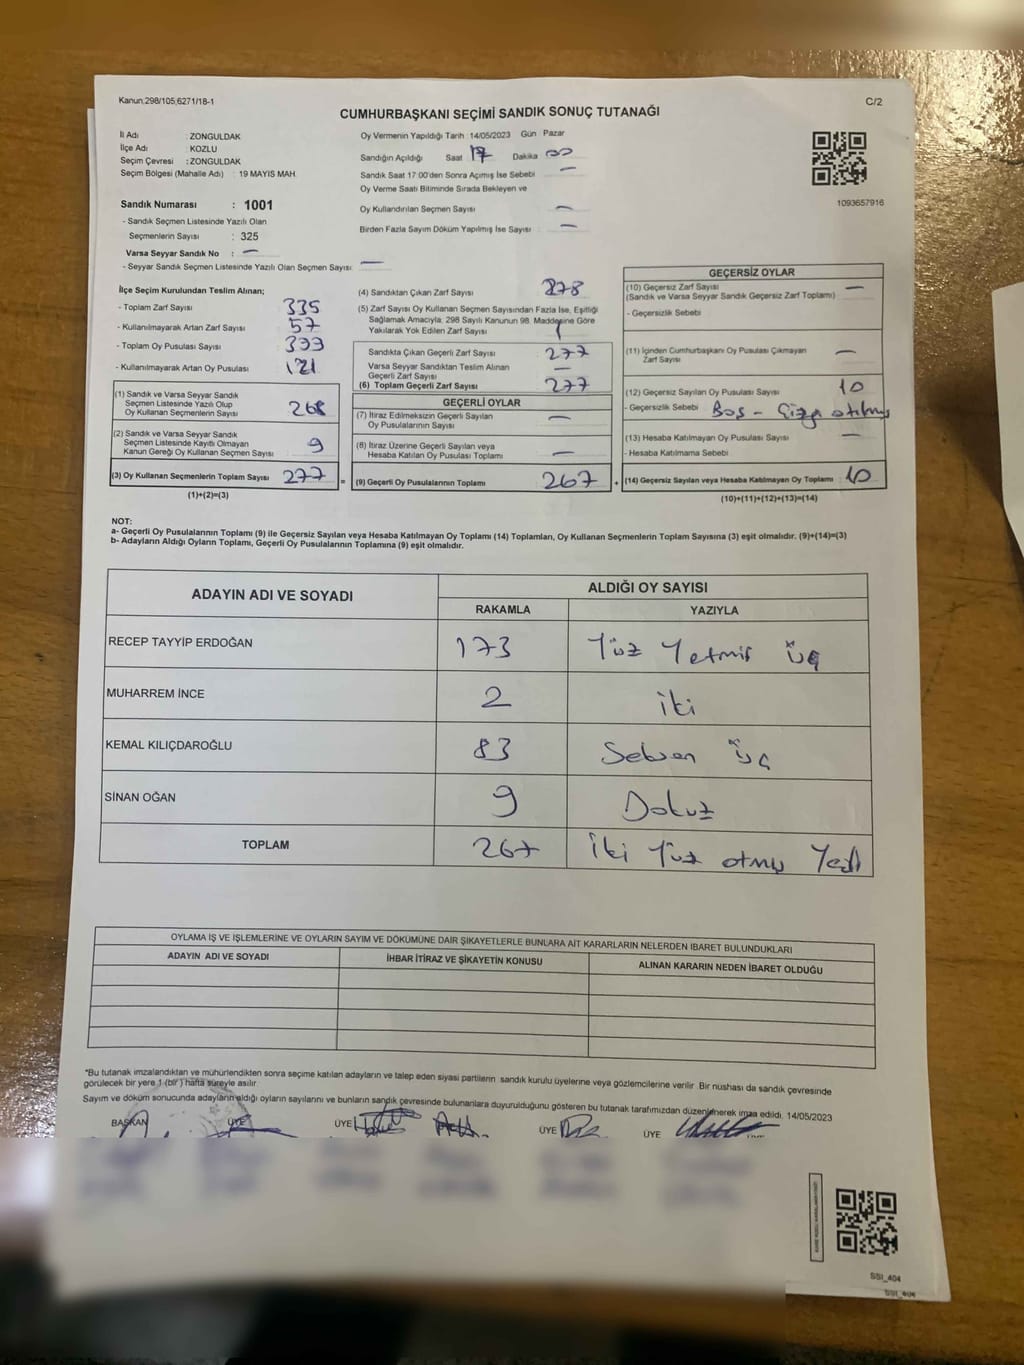 Kanun,298/105;6271/18-1
C/2
CUMHURBAŞKANI SEÇİMİ SANDIK SONUÇ TUTANAĞI
İl Adı : ZONGULDAK
İlçe Adı : KOZLU
Seçim Çevresi : ZONGULDAK
Seçim Bölgesi (Mahalle Adı) : 19 MAYIS MAH.
Oy Vermenin Yapıldığı Tarih :14/05/2023 Gün : Pazar
Sandığın Açıldığı Saat : 17 Dakika : 00
Sandık Saat 17:00'den Sonra Açımış İse Sebebi : —
Oy Verme Saati Bitiminde Sırada Bekleyen ve
Oy Kullandırılan Seçmen Sayısı : —
Birden Fazla Sayım Döküm Yapılmış İse Sayısı : —
1093657916
Sandık Numarası : 1001
- Sandık Seçmen Listesinde Yazılı Olan
Seçmenlerin Sayısı : 325
Varsa Seyyar Sandık No : —
- Seyyar Sandık Seçmen Listesinde Yazılı Olan Seçmen Sayısı: —
İlçe Seçim Kurulundan Teslim Alınan;
- Toplam Zarf Sayısı 335
- Kullanılmayarak Artan Zarf Sayısı 57
- Toplam Oy Pusulası Sayısı
- Kullanılmayarak Artan Oy Pusulası 121
(1) Sandık ve Varsa Seyyar Sandık
Seçmen Listesinde Yazılı Olup
Oy Kullanan Seçmenlerin Sayısı 268
(2) Sandık ve Varsa Seyyar Sandık
Seçmen Listesinde Kayıtlı Olmayan
Kanun Gereği Oy Kullanan Seçmen Sayısı 9
(3) Oy Kullanan Seçmenlerin Toplam Sayısı 277 =
(1)+(2)=(3)
(4) Sandıktan Çıkan Zarf Sayısı 278
(5) Zarf Sayısı Oy Kullanan Seçmen Sayısından Fazla İse, Eşitliği
Sağlamak Amacıyla, 298 Sayılı Kanunun 98. Maddesine Göre
Yakılarak Yok Edilen Zarf Sayısı 1
Sandıkta Çıkan Geçerli Zarf Sayısı 277
Varsa Seyyar Sandıktan Teslim Alınan
Geçerli Zarf Sayısı —
(6) Toplam Geçerli Zarf Sayısı 277
GEÇERLİ OYLAR
(7) İtiraz Edilmeksizin Geçerli Sayılan
Oy Pusulalarının Sayısı —
(8) İtiraz Üzerine Geçerli Sayılan veya
Hesaba Katılan Oy Pusulası Toplamı —
(9) Geçerli Oy Pusulalarının Toplamı 267 +
GEÇERSİZ OYLAR
(10) Geçersiz Zarf Sayısı —
(Sandık ve Varsa Seyyar Sandık Geçersiz Zarf Toplamı)
- Geçersizlik Sebebi
(11) İçinden Cumhurbaşkanı Oy Pusulası Çıkmayan
Zarf Sayısı —
(12) Geçersiz Sayılan Oy Pusulası Sayısı 10
- Geçersizlik Sebebi Boş - Çizgi atılmış
(13) Hesaba Katılmayan Oy Pusulası Sayısı —
- Hesaba Katılmama Sebebi
(14) Geçersiz Sayılan veya Hesaba Katılmayan Oy Toplamı 10
(10)+(11)+(12)+(13)=(14)
NOT:
a- Geçerli Oy Pusulalarının Toplamı (9) ile Geçersiz Sayılan veya Hesaba Katılmayan Oy Toplamı (14) Toplamları, Oy Kullanan Seçmenlerin Toplam Sayısına (3) eşit olmalıdır. (9)+(14)=(3)
b- Adayların Aldığı Oyların Toplamı, Geçerli Oy Pusulalarının Toplamına (9) eşit olmalıdır.
ADAYIN ADI VE SOYADI
ALDIĞI OY SAYISI
RAKAMLA YAZIYLA
RECEP TAYYİP ERDOĞAN 173 Yüz Yetmiş üç
MUHARREM İNCE 2 iki
KEMAL KILIÇDAROĞLU 83 Seksen üç
SİNAN OĞAN 9 Dokuz
TOPLAM 267 iki Yüz atmış Yedi
OYLAMA İŞ VE İŞLEMLERİNE VE OYLARIN SAYIM VE DÖKÜMÜNE DAİR ŞİKAYETLERLE BUNLARA AİT KARARLARIN NELERDEN İBARET BULUNDUKLARI
ADAYIN ADI VE SOYADI İHBAR İTİRAZ VE ŞİKAYETİN KONUSU ALINAN KARARIN NEDEN İBARET OLDUĞU
*Bu tutanak imzalandıktan ve mühürlendikten sonra seçime katılan adayların ve talep eden siyasi partilerin sandık kurulu üyelerine veya gözlemcilerine verilir. Bir nüshası da sandık çevresinde
görülecek bir yere 1 (bir ) hafta süreyle asılır.
Sayım ve döküm sonucunda adayların aldığı oyların sayılarını ve bunların sandık çevresinde bulunanlara duyurulduğunu gösteren bu tutanak tarafımızdan düzenlenerek imza edildi. 14/05/2023
BAŞKAN ÜYE ÜYE ÜYE ÜYE
SSI_404
SSI_404